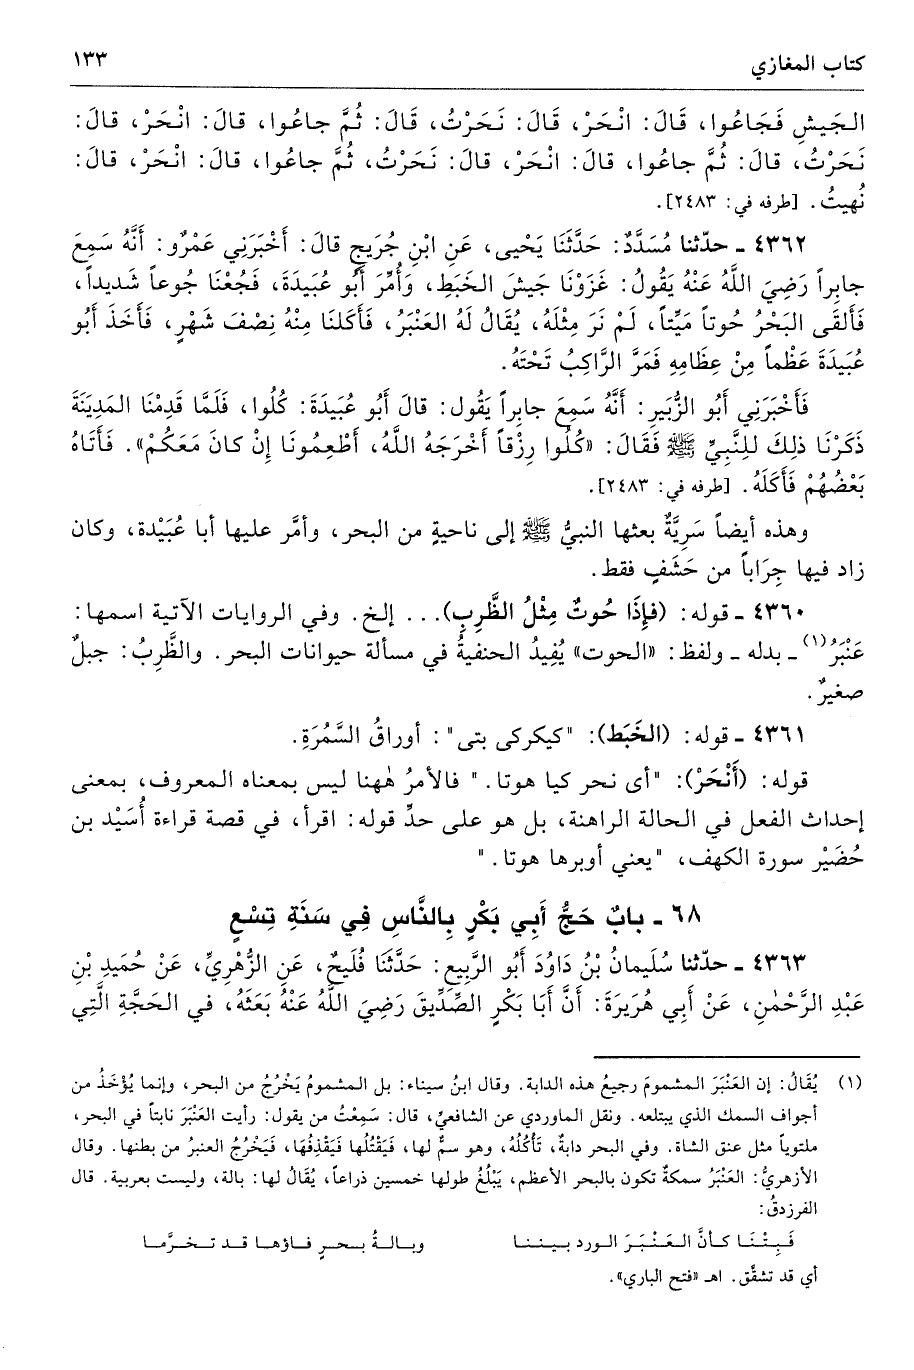 كتاب المغازي ١٣٣
الجَيشِ فَجَاعُوا، قَالَ: انْحَرْ، قَالَ: نَحَرْتُ، قَالَ: ثُمَّ جاعُوا، قالَ: انْحَرْ، قالَ:
نَحَرْتُ، قالَ: ثُمَّ جاعُوا، قالَ: انْحَرْ، قالَ: نَحَرْتُ، ثُمَّ جاعُوا، قالَ: انْحَرْ، قالَ:
نُهيتُ. [طرفه في: ٢٤٨٣].
٤٣٦٢ ـ حدّثنا مُسَدَّدٌ: حَدَّثَنَا يَحْيى، عَنِ ابْنِ جُرَيجٍ قالَ: أَخْبَرَنِي عَمْرٌو: أَنَّهُ سَمِعَ
جابِراً رَضِيَ اللَّهُ عَنْهُ يَقُولُ: غَزَوْنَا جَيشَ الخَبَطِ، وَأُمِّرَ أَبُو عُبَيدَةَ، فَجُعْنَا جُوعاً شَديداً،
فَأَلقَى البَحْرُ حُوتاً مَيِّتاً، لَمْ نَرَ مِثْلَهُ، يُقَالُ لَهُ العَنْبَرُ، فَأَكَلنَا مِنْهُ نِصْفَ شَهْرٍ، فَأَخَذَ أَبُو
عُبَيدَةَ عَظْماً مِنْ عِظَامِهِ فَمَرَّ الرَّاكِبُ تَحْتَهُ.
فَأَخْبَرَنِي أَبُو الزُّبَيرِ: أَنَّهُ سَمِعَ جابِراً يَقُول: قالَ أَبُو عُبَيدَةَ: كُلُوا، فَلَمَّا قَدِمْنَا المَدِينَةَ
ذَكَرْنَا ذلِكَ لِلنَّبِيِّ ﷺ فَقَالَ: «كُلُوا رِزْقاً أَخْرَجَهُ اللَّهُ، أَطْعِمُونَا إِنْ كانَ مَعَكُمْ». فَأَتَاهُ
بَعْضُهُمْ فَأَكَلَهُ. [طرفه في: ٢٤٨٣].
وهذه أيضاً سَرِيَّةٌ بعثها النبيُّ ﷺ إلى ناحيةٍ من البحر، وأمَّر عليها أبا عُبَيْدة، وكان
زاد فيها جِرَاباً من حَشَفٍ فقط.
٤٣٦٠ ـ قوله: (فإِذَا حُوتٌ مِثْلُ الظَّرِبِ)... إلخ. وفي الروايات الآتية اسمها:
عَنْبَرُ(١) ـ بدله ـ ولفظ: «الحوت» يُفِيدُ الحنفيةُ في مسألة حيوانات البحر. والظَّرِبُ: جبلٌ
صغيرٌ.
٤٣٦١ ـ قوله: (الخَبَط): "كيكركى بتى": أوراقُ السَّمُرَةِ.
قوله: (أَنْحَرْ): "أى نحر كيا هوتا." فالأمرُ هٰهنا ليس بمعناه المعروف، بمعنى
إحداث الفعل في الحالة الراهنة، بل هو على حدِّ قوله: اقرأ، في قصة قراءة أُسَيْد بن
حُضَيْر سورة الكهف، "يعني أوبرها هوتا."
٦٨ ـ بابٌ حَجُّ أَبِي بَكْرٍ بِالنَّاسِ فِي سَنَةِ تِسْعٍ
٤٣٦٣ ـ حدّثنا سُلَيمانُ بْنُ دَاوُدَ أَبُو الرَّبِيعِ: حَدَّثَنَا فُلَيحٌ، عَنِ الزُّهْرِيِّ، عَنْ حُمَيدِ بْنِ
عَبْدِ الرَّحْمٰنِ، عَنْ أَبِي هُرَيرَةَ: أَنَّ أَبَا بَكْرٍ الصِّدِّيقَ رَضِيَ اللَّهُ عَنْهُ بَعَثَهُ، في الحَجَّةِ الَّتِي
(١) يُقَالُ: إن العَنْبَرَ المشمومَ رجيعُ هذه الدابة. وقال ابنُ سيناء: بل المشمومُ يَخْرُجُ من البحر، وإنما يُؤْخَذُ من
أجواف السمك الذي يبتلعه. ونقل الماوردي عن الشافعيِّ، قال: سَمِعْتُ من يقول: رأيت العَنْبَرَ نابتاً في البحر،
ملتوياً مثل عنق الشاة. وفي البحر دابةٌ، تَأْكُلُهُ، وهو سمٌّ لها، فَيَقْتُلُها فَيَقْذِفُهَا، فَيَخْرُجُ العنبرُ من بطنها. وقال
الأزهريُّ: العَنْبَرُ سمكةٌ تكون بالبحر الأعظم، يَبْلُغُ طولها خمسين ذراعاً، يُقَالُ لها: بالة، وليست بعربية. قال
الفرزدقُ:
فَبِتْنَا كأنَّ العَنْبَرَ الورد بيننا وبالةُ بحرٍ فاؤها قد تخرَّما
أي قد تشقَّق. اهـ «فتح الباري».